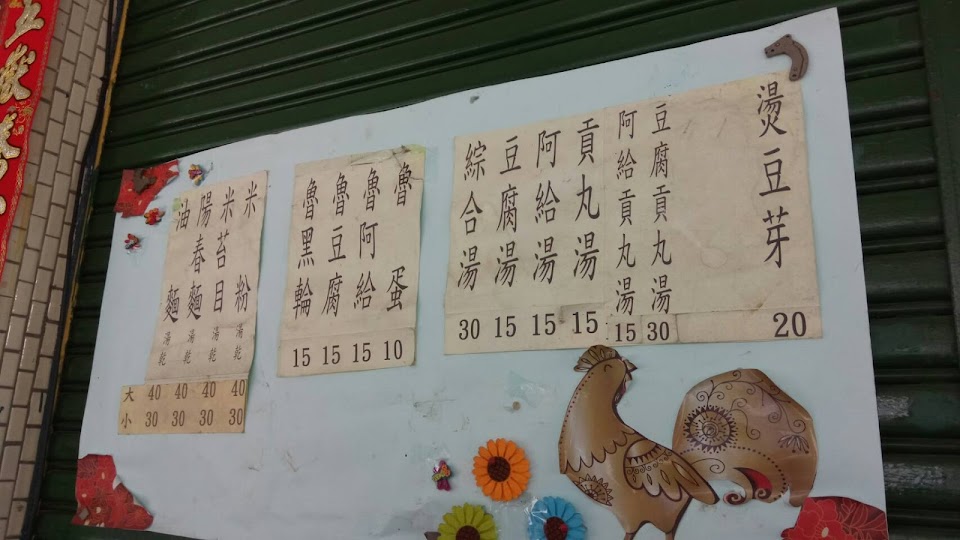 燙豆芽 20
豆腐貢丸湯 30
阿給貢丸湯 15
貢丸湯 15
阿給湯 15
豆腐湯 15
綜合湯 30
魯蛋 10
魯阿給 15
魯豆腐 15
魯黑輪 15
米粉 湯乾 40 30
米苔目 湯乾 40 30
陽春麵 湯乾 40 30
油麵 湯乾 40 30
大
小